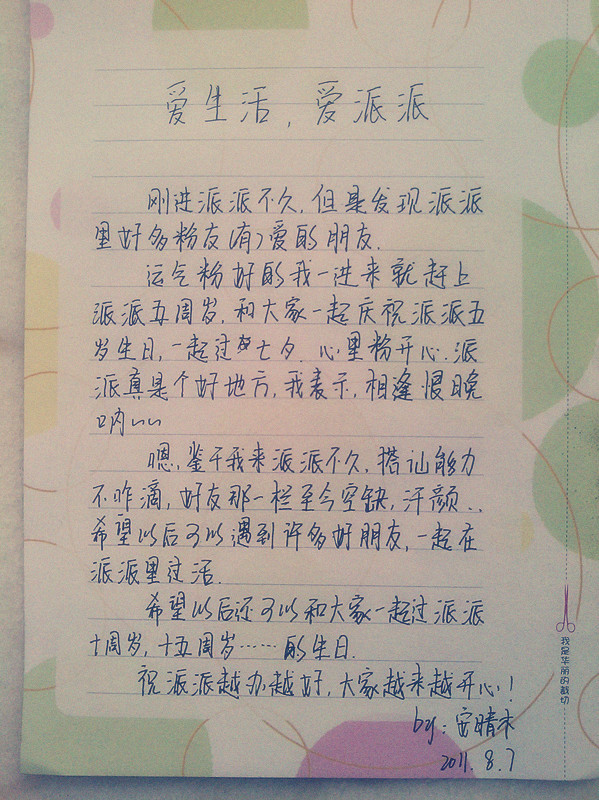 爱生活，爱派派
刚进派派不久，但是发现派派
里好多粉友(有)爱的朋友.
运气粉好的我一进来就赶上
派派五周岁，和大家一起庆祝派派五
岁生日，一起过七夕．心里粉开心．派
派真是个好地方，我表示，相逢恨晚
呐~~
嗯，鉴于我来派派不久，搭讪能力
不咋滴，好友那一栏至今空缺，汗颜..
希望以后可以遇到许多好朋友，一起在
派派里过活.
希望以后还可以和大家一起过派派
十周岁，十五周岁……的生日.
祝派派越办越好，大家越来越开心！
by：安晴木
2011.8.7
我是华丽的裁切